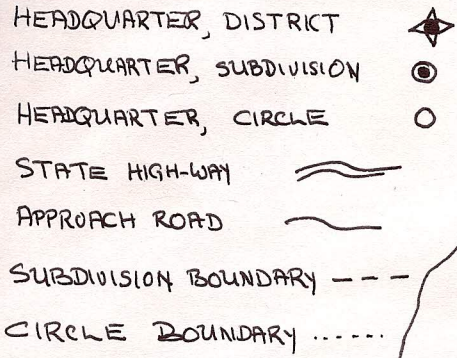 HEADQUARTER, DISTRICT
HEADQUARTER, SUBDIVISION
HEADQUARTER, CIRCLE
STATE HIGH-WAY
APPROACH ROAD
SUBDIVISION BOUNDARY
CIRCLE BOUNDARY